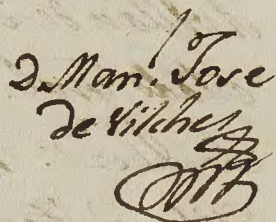 D. Man.l Jose
de Vilches